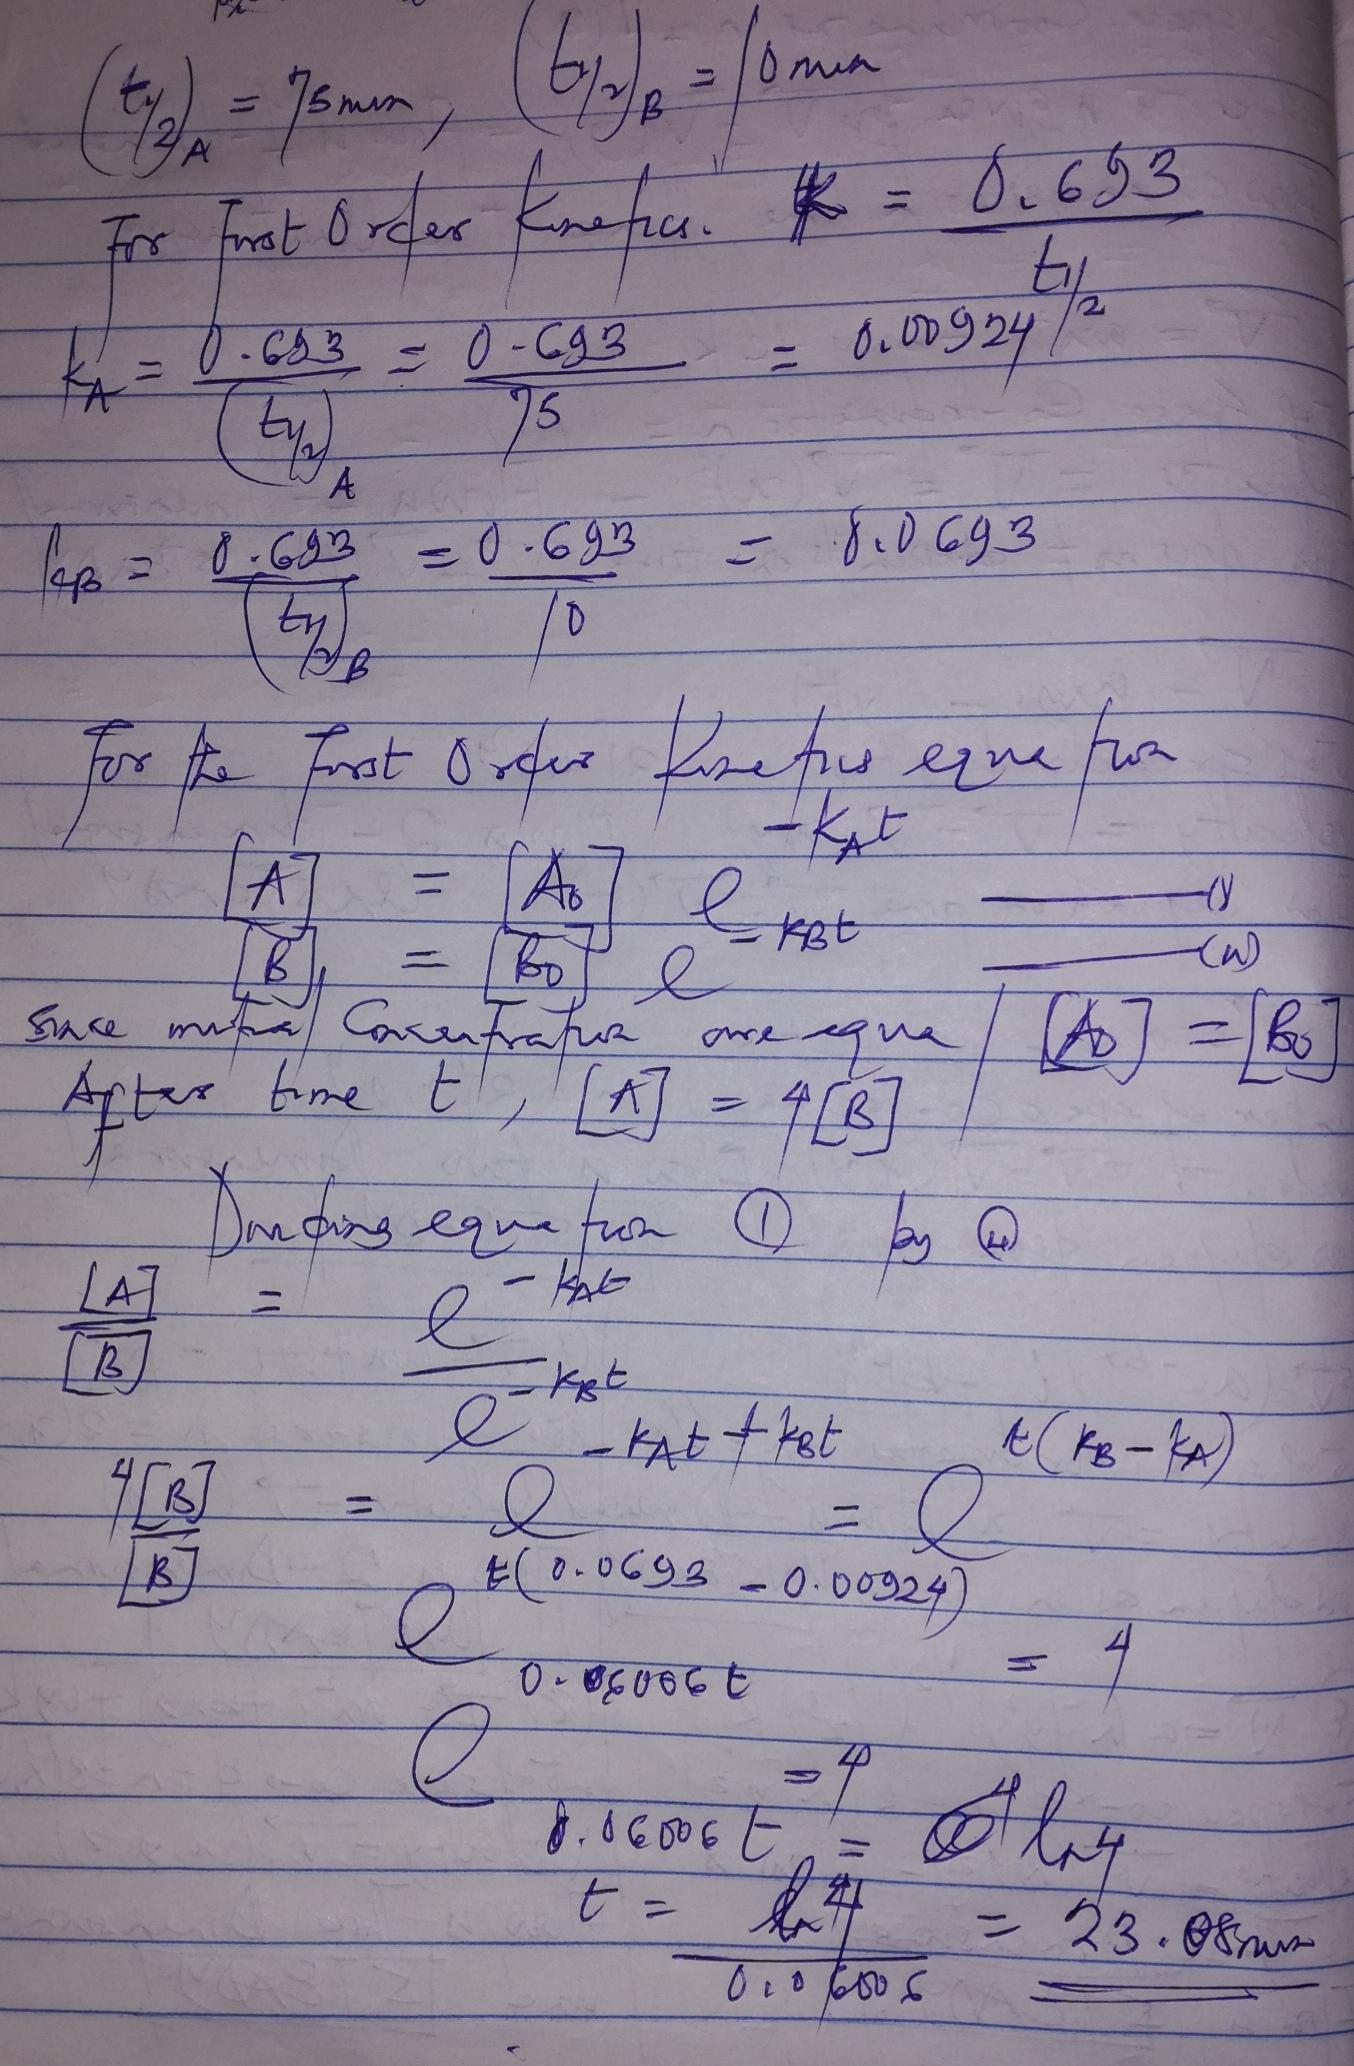 (t1/2)A = 75min, (t1/2)B = 10min
For First Order Kinetics. K = 0.693 / t1/2
kA = 0.693 / (t1/2)A = 0.693 / 75 = 0.00924
kB = 0.693 / (t1/2)B = 0.693 / 10 = 0.0693
For the First Order Kinetics equation
[A] = [A0] e^-KAt ——— (1)
[B] = [B0] e^-KBt ——— (11)
Since initial Concentration are equal [A0] = [B0]
After time t, [A] = 4[B]
Dividing equation ① by ⑪
[A] / [B] = e^-KAt / e^-KBt
4[B] / [B] = e^-KAt + KBt = e^t(KB - KA)
e^t(0.0693 - 0.00924) = 4
e^0.06006t = 4
0.06006t = ln4
t = ln4 / 0.06006 = 23.08min